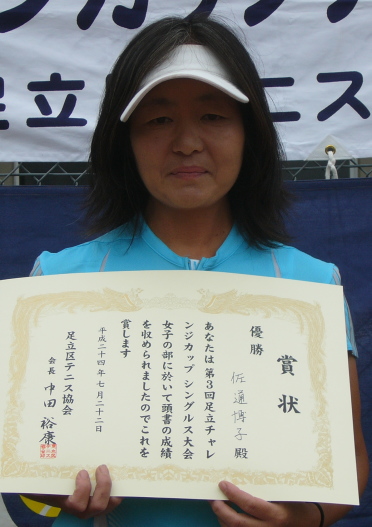 ンジカップテ
足立区テニス
賞状
優勝
佐通博子殿
あなたは第3回足立チャレ
ンジカップシングルス大会
女子の部に於いて頭書の成績
を収められましたのでこれを
賞します
平成二十四年七月二十二日
足立区テニス協会
会長 中田裕康